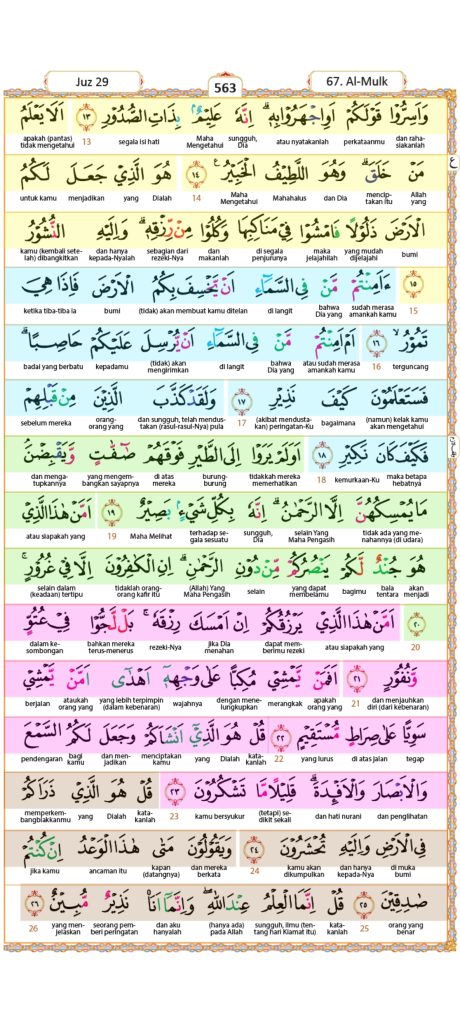 Juz 29
563
67. Al-Mulk
وَاَسِرُّوْا قَوْلَكُمْ اَوِ اجْهَرُوْا بِهٖۗ اِنَّهٗ عَلِيْمٌ ۢبِذَاتِ الصُّدُوْرِ ١٣ اَلَا يَعْلَمُ
dan raha-siakanlah perkataanmu atau nyatakanlah sungguh, Dia Maha Mengetahui segala isi hati 13 apakah (pantas) tidak mengetahui
مَنْ خَلَقَۗ وَهُوَ اللَّطِيْفُ الْخَبِيْرُ ١٤ هُوَ الَّذِيْ جَعَلَ لَكُمُ
Allah yang mencip-takan itu dan Dia Mahahalus Maha Mengetahui 14 Dialah yang menjadikan untuk kamu
الْاَرْضَ ذَلُوْلًا فَامْشُوْا فِيْ مَنَاكِبِهَا وَكُلُوْا مِنْ رِّزْقِهٖۗ وَاِلَيْهِ النُّشُوْرُ
bumi yang mudah dijelajahi maka jelajahilah di segala penjurunya dan makanlah sebagian dari rezeki-Nya dan hanya kepada-Nyalah kamu (kembali sete-lah) dibangkitkan
١٥ ءَاَمِنْتُمْ مَّنْ فِى السَّمَاۤءِ اَنْ يَّخْسِفَ بِكُمُ الْاَرْضَ فَاِذَا هِيَ
15 sudah merasa amankah kamu bahwa Dia yang di langit (tidak) akan membuat kamu ditelan bumi ketika tiba-tiba ia
تَمُوْرُۙ ١٦ اَمْ اَمِنْتُمْ مَّنْ فِى السَّمَاۤءِ اَنْ يُّرْسِلَ عَلَيْكُمْ حَاصِبًاۗ
terguncang 16 atau sudah merasa amankah kamu bahwa Dia yang di langit (tidak) akan mengirimkan kepadamu badai yang berbatu
فَسَتَعْلَمُوْنَ كَيْفَ نَذِيْرِ ١٧ وَلَقَدْ كَذَّبَ الَّذِيْنَ مِنْ قَبْلِهِمْ
(namun) kelak kamu akan mengetahui bagaimana (akibat mendusta-kan) peringatan-Ku 17 dan sungguh, telah mendus-takan (rasul-rasul-Nya) pula orang-orang yang sebelum mereka
فَكَيْفَ كَانَ نَكِيْرِ ١٨ اَوَلَمْ يَرَوْا اِلَى الطَّيْرِ فَوْقَهُمْ صٰۤفّٰتٍ وَّيَقْبِضْنَۘ
maka betapa hebatnya kemurkaan-Ku 18 tidakkah mereka memerhatikan burung-burung di atas mereka yang mengem-bangkan sayapnya dan menga-tupkannya
مَا يُمْسِكُهُنَّ اِلَّا الرَّحْمٰنُۗ اِنَّهٗ بِكُلِّ شَيْءٍ ۢبَصِيْرٌ ١٩ اَمَّنْ هٰذَا الَّذِيْ
tidak ada yang me-nahannya (di udara) selain Yang Maha Pengasih sungguh, Dia terhadap se-gala sesuatu Maha Melihat 19 atau siapakah yang
هُوَ جُنْدٌ لَّكُمْ يَنْصُرُكُمْ مِّنْ دُوْنِ الرَّحْمٰنِۗ اِنِ الْكٰفِرُوْنَ اِلَّا فِيْ غُرُوْرٍۚ
akan menjadi bala tentara bagimu yang dapat membelamu selain (Allah) Yang Maha Pengasih tidaklah orang-orang kafir itu selain dalam (keadaan) tertipu
٢٠ اَمَّنْ هٰذَا الَّذِيْ يَرْزُقُكُمْ اِنْ اَمْسَكَ رِزْقَهٗۚ بَلْ لَّجُّوْا فِيْ عُتُوٍّ
20 atau siapakah yang dapat mem-berimu rezeki jika Dia menahan rezeki-Nya bahkan mereka terus-menerus dalam ke-sombongan
وَّنُفُوْرٍ ٢١ اَفَمَنْ يَّمْشِيْ مُكِبًّا عَلٰى وَجْهِهٖٓ اَهْدٰىٓ اَمَّنْ يَّمْشِيْ
dan menjauhkan diri (dari kebenaran) 21 apakah orang yang merangkak dengan mene-lungkupkan wajahnya yang lebih terpimpin (dalam kebenaran) ataukah orang yang berjalan
سَوِيًّا عَلٰى صِرَاطٍ مُّسْتَقِيْمٍ ٢٢ قُلْ هُوَ الَّذِيْٓ اَنْشَاَكُمْ وَجَعَلَ لَكُمُ السَّمْعَ
tegap di atas jalan yang lurus 22 kata-kanlah Dialah yang menciptakan kamu dan men-jadikan bagi kamu pendengaran
وَالْاَبْصَارَ وَالْاَفْـِٕدَةَۗ قَلِيْلًا مَّا تَشْكُرُوْنَ ٢٣ قُلْ هُوَ الَّذِيْ ذَرَاَكُمْ
dan penglihatan dan hati nurani (tetapi) se-dikit sekali kamu bersyukur 23 kata-kanlah Dialah yang memperkem-bangbiakkanmu
فِى الْاَرْضِ وَاِلَيْهِ تُحْشَرُوْنَ ٢٤ وَيَقُوْلُوْنَ مَتٰى هٰذَا الْوَعْدُ اِنْ كُنْتُمْ
di muka bumi dan hanya kepada-Nya kamu akan dikumpulkan 24 dan mereka berkata kapan (datangnya) ancaman itu jika kamu
صٰدِقِيْنَ ٢٥ قُلْ اِنَّمَا الْعِلْمُ عِنْدَ اللّٰهِۖ وَاِنَّمَآ اَنَا۠ نَذِيْرٌ مُّبِيْنٌ ٢٦
orang yang benar 25 kata-kanlah sungguh, ilmu (ten-tang hari Kiamat itu) (hanya ada) pada Allah dan aku hanyalah seorang pem-beri peringatan yang men-jelaskan 26